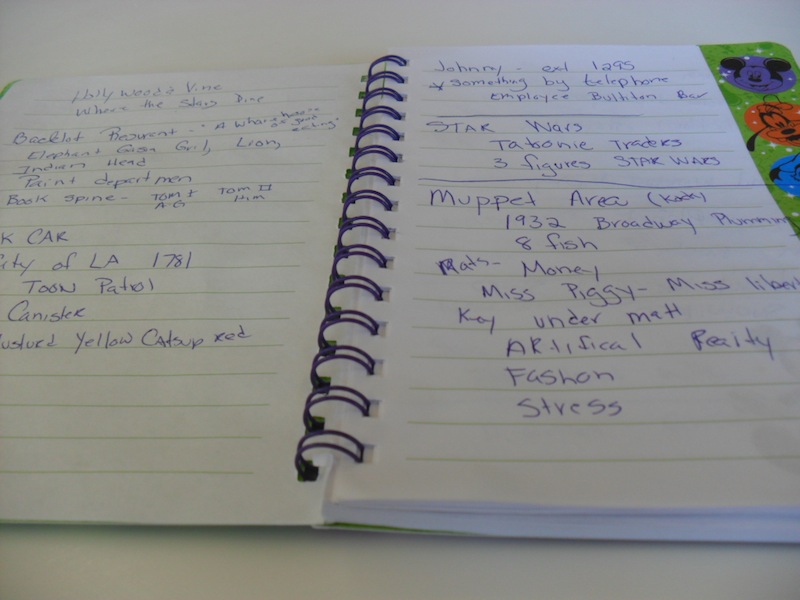 Hollywood & Vine
Where the Stars Dine
Backlot Resurent - "A Wharehouse
of good
eating"
Elephant Girl, Lion,
Indian Head
Paint departmen
Book spine - TOM I TOM II
A-G Him
K CAR
City of LA 1781
TOON Patrol
Canister
usturd Yellow Catsup red
Johnny - ext 1295
* Something by telephone
Employee Bulliton Bar
STAR Wars
Tatonie Traders
3 figures STAR WARS
Muppet Area (Kady)
1932 Broadway Plummin
8 fish
Rats - Money
Miss Piggy - Miss libert
Key under matt
ARtifical Reaity
Fashon
Stress